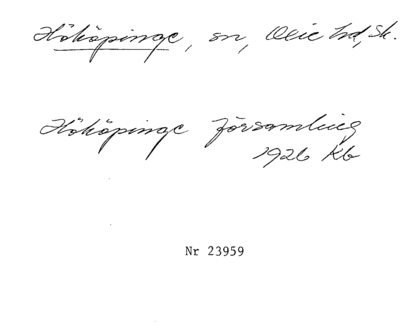 Hököpinge, sn, Oxie hd, Sk.
Hököpinge församling
1926 Kb
Nr 23959